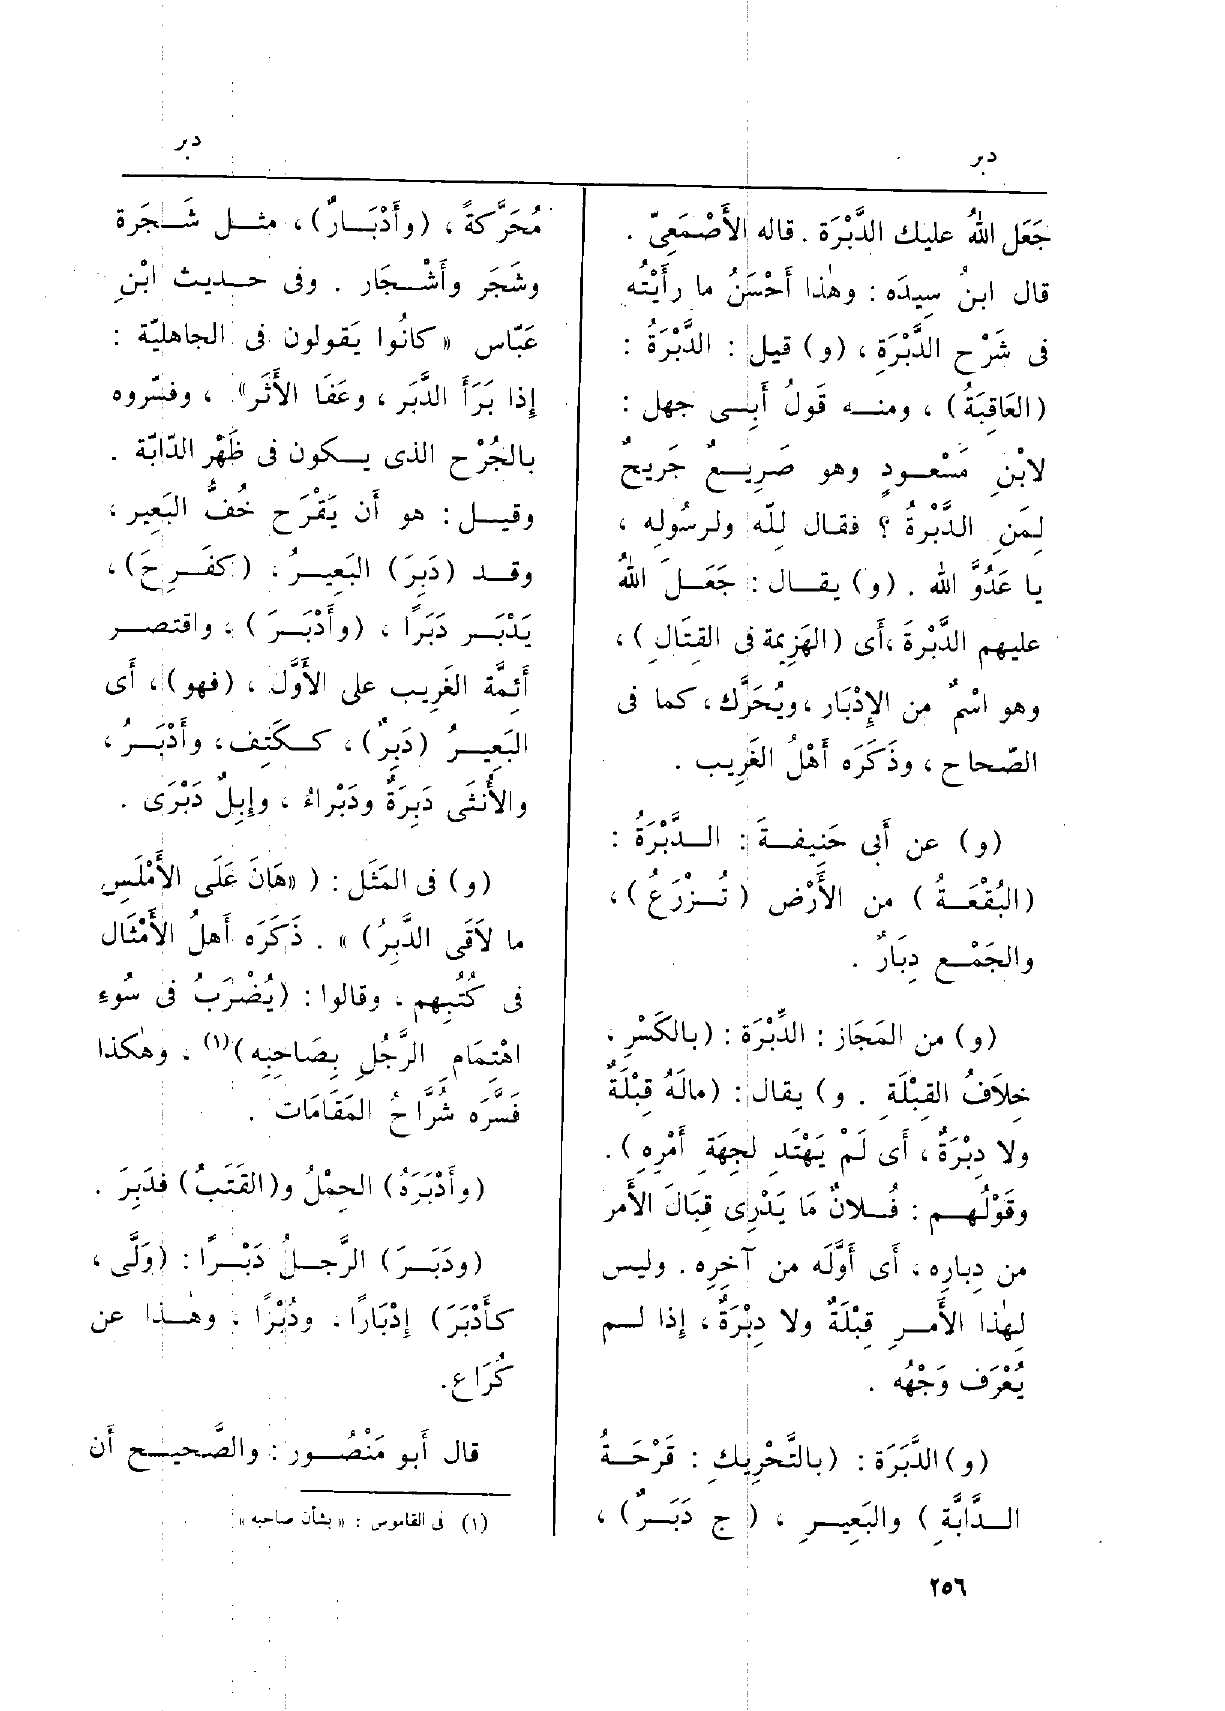 دبر
دبر
جَعَل اللهُ عليك الدَّبْرَة . قاله الأَصْمَعِىّ .
قال ابنُ سِيدَه : وهٰذا أَحْسَنُ ما رأَيْتُه
فى شَرْح الدَّبْرَةِ ، (و) قيل : الدَّبْرَةُ :
(العَاقِبَةُ) ، ومنه قَولُ أَبِى جهل :
لابْنِ مَسْعودٍ وهو صَرِيعٌ جَرِيحٌ
لِمَنِ الدَّبْرَةُ ؟ فقال لِلّه ولرسُولِه ،
يا عَدُوَّ الله . (و) يقال : جَعَلَ اللهُ
عليهم الدَّبْرَةَ ،أَى (الهَزِيمَة فى القِتَالِ) ،
وهو اسْمٌ من الإِدْبَار ، ويُحَرَّك ، كما فى
الصّحاح ، وذَكَرَه أَهْلُ الغَرِيب .
(و) عن أَبى حَنِيفَةَ : الدَّبْرَةُ :
(البُقْعَةُ) من الأَرْض (تُزْرَعُ) ،
والجَمْع دِبَارٌ .
(و) من المَجَاز : الدِّبْرَة : (بالكَسْرِ ،
خِلاَفُ القِبْلَةِ . و) يقال : (مالَهُ قِبْلَةٌ
ولا دِبْرَةٌ ، أَى لَمْ يَهْتَدِ لجِهَةِ أَمْرِه) .
وقَوْلُهم : فُلانٌ مَا يَدْرِى قِبَالَ الأَمر
من دِبارِه ، أَى أَوَّلَه من آخِرِه . وليس
لِهٰذا الأَمرِ قِبْلَةٌ ولا دِبْرَةٌ ، إِذا لم
يُعْرَف وَجْهُه .
(و) الدَّبَرَة : (بالتَّحْرِيكِ : قَرْحَةُ
الدَّابَّةِ) والبَعِيرِ ، (ج دَبَرٌ) ،
مُحَرَّكةً ، (وأَدْبَارٌ) ، مثل شَجَرة
وشَجَر وأَشْجَار . وفى حديث ابْنِ
عَبّاس « كانُوا يَقولون فى الجاهليّة :
إِذا بَرَأَ الدَّبَر ، وعَفَا الأَثَر » ، وفسّروه
بالجُرْح الذى يكون فى ظَهْر الدابّة .
وقيل : هو أَن يَقْرَح خُفُّ البَعِير ،
وقد (دَبِرَ) البَعِيرُ ، (كفَرِحَ) ،
يَدْبَر دَبَرًا ، (وأَدْبَرَ) ، واقتصر
أَئِمَّة الغَرِيب على الأَوَّل ، (فهو) ، أَى
البَعِيرُ (دَبِرٌ) ، ككَتِف ، وأَدْبَرُ ،
والأُنثَى دَبِرَةٌ ودَبْراءُ ، وإِبِلٌ دَبْرَى .
(و) فى المَثَل : ( «هَانَ عَلَى الأَمْلَسِ
ما لاَقَى الدَّبِرُ) » . ذَكَرَه أَهلُ الأَمْثَال
فى كُتُبِهم ، وقالوا : (يُضْرَبُ فى سُوءِ
اهْتِمَامِ الرَّجُلِ بِصَاحِبِه)(١) . وهٰكذا
فَسَّرَه شُرَّاحُ المَقَامَات .
(وأَدْبَرَهُ) الحِمْلُ و(القَتَبُ) فدَبِرَ .
(ودَبَرَ) الرَّجلُ دَبْرًا : (وَلَّى ،
كأَدْبَرَ) إِدْبَارًا ، ودُبْرًا ، وهٰذا عن
كُرَاع .
قال أَبو مَنْصُور : والصَّحيح أَن
(١) فى القاموس : « بشأن صاحبه »
٢٥٦